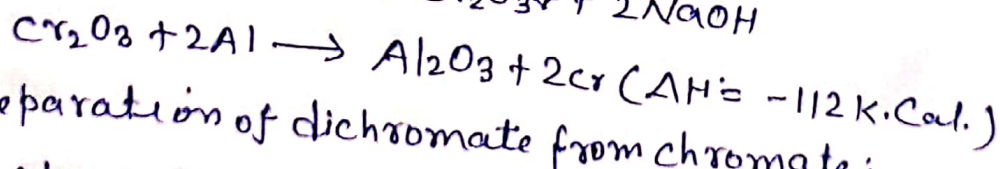 + 2NaOH
Cr₂O₃ + 2Al ⟶ Al₂O₃ + 2Cr (ΔH = -112 K.Cal.)
eparation of dichromate from chromate: